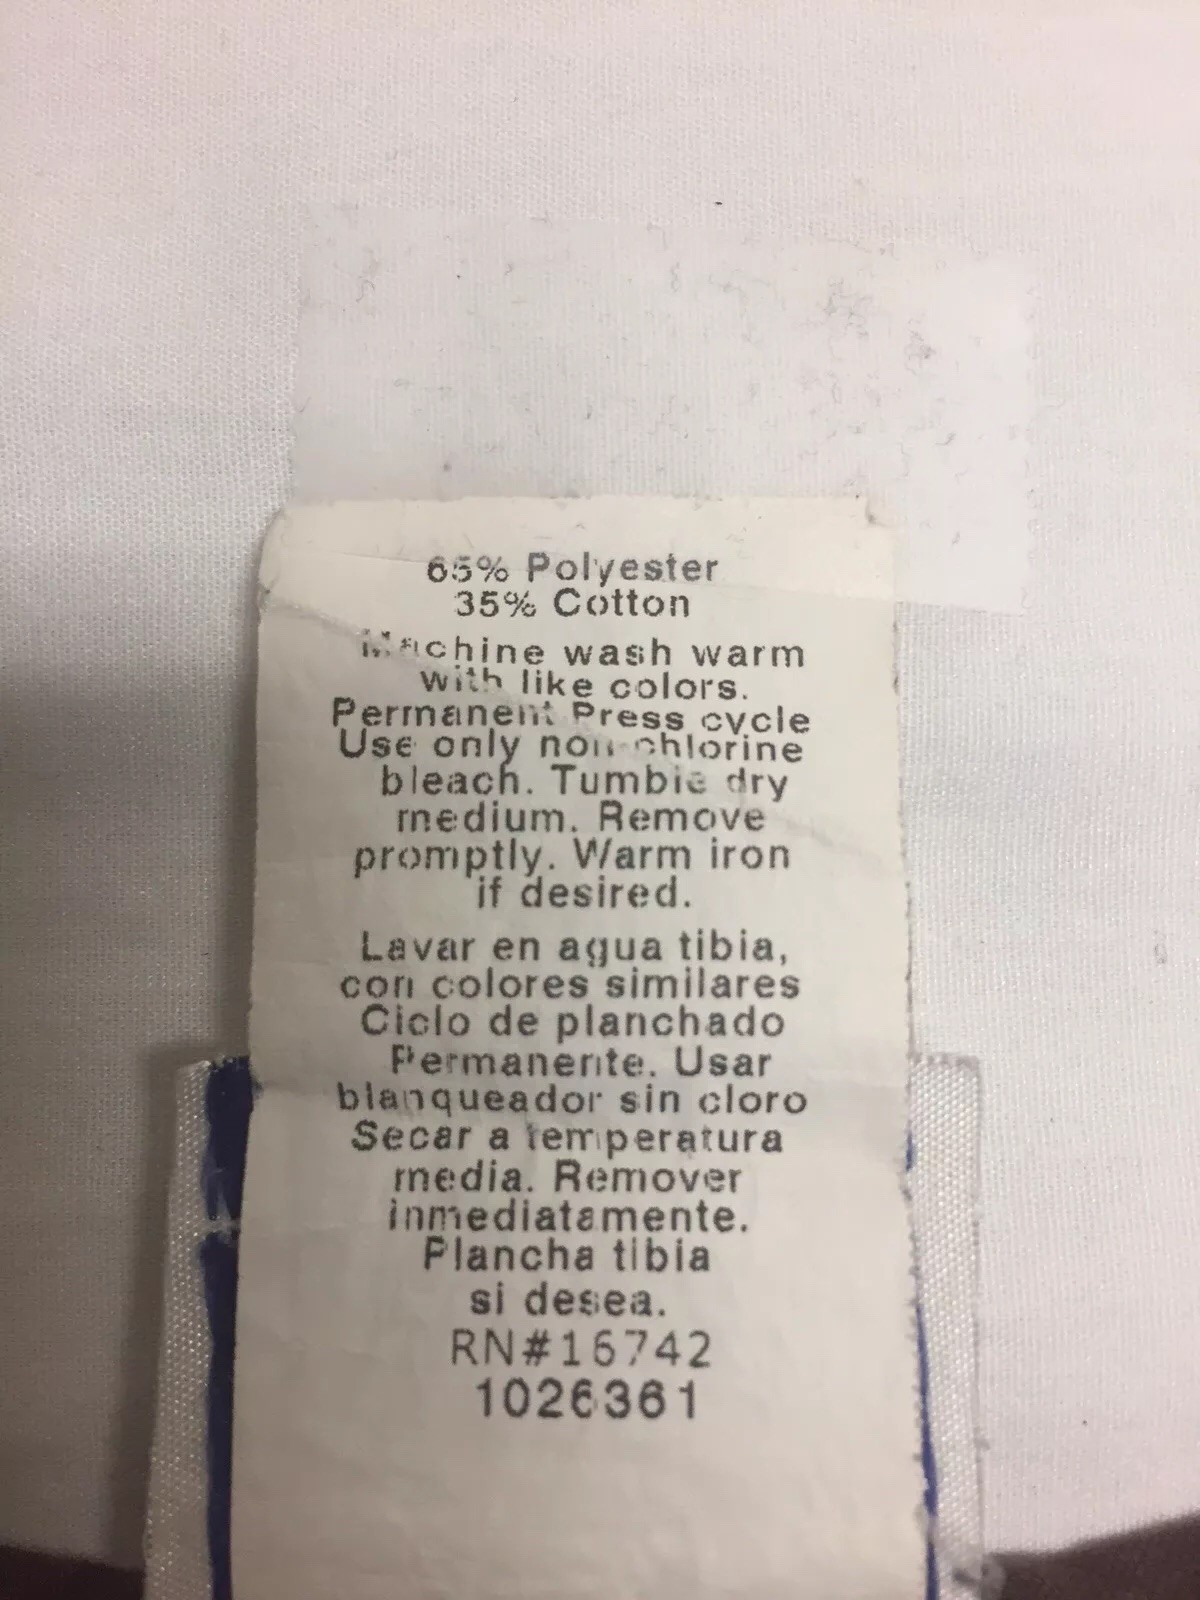 65% Polyester
35% Cotton
Machine wash warm
with like colors.
Permanent Press cycle
Use only non-chlorine
bleach. Tumble dry
medium. Remove
promptly. Warm iron
if desired.
Lavar en agua tibia,
con colores similares
Ciclo de planchado
Permanente. Usar
blanqueador sin cloro
Secar a temperatura
media. Remover
inmediatamente.
Plancha tibia
si desea.
RN#16742
1026361